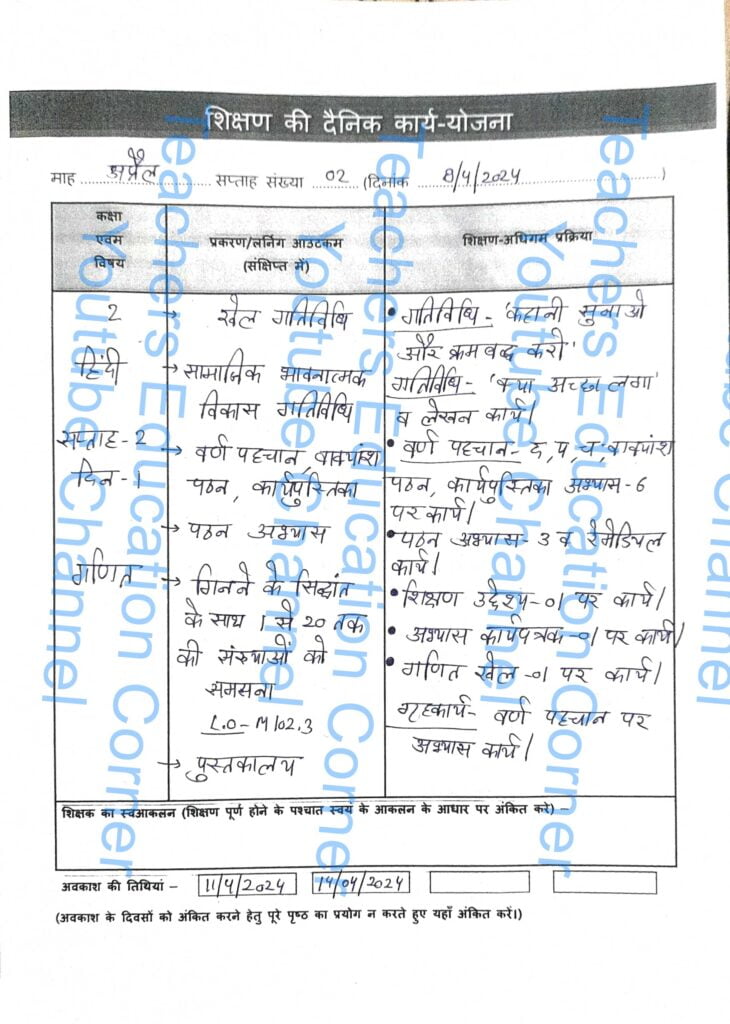 शिक्षण की दैनिक कार्य-योजना
माह अप्रैल सप्ताह संख्या 02 (दिनांक 8/4/2024)
कक्षा एवम विषय
प्रकरण/लर्निंग आउटकम (संक्षिप्त में)
शिक्षण-अधिगम प्रक्रिया
2
हिंदी
सप्ताह-2
दिन-1
गणित
→ खेल गतिविधि
→ सामाजिक भावनात्मक
विकास गतिविधि
→ वर्ण पहचान, वाक्यांश
पठन, कार्यपुस्तिका
→ पठन अभ्यास
→ गिनने के सिद्धांत
के साथ 1 से 20 तक
की संख्याओं को
समझना
L.O-M102.3
→ पुस्तकालय
• गतिविधि- 'कहानी सुनाओ
और क्रमबद्ध करो'
गतिविधि- 'क्या अच्छा लगा'
व लेखन कार्य।
• वर्ण पहचान- द, प, च, वाक्यांश
पठन, कार्यपुस्तिका अभ्यास-6
पर कार्य।
• पठन अभ्यास-3 व रेमेडियल
कार्य।
• शिक्षण उद्देश्य-01 पर कार्य।
• अभ्यास कार्यपत्रक-01 पर कार्य।
• गणित खेल-01 पर कार्य।
गृहकार्य- वर्ण पहचान पर
अभ्यास कार्य।
शिक्षक का स्वआकलन (शिक्षण पूर्ण होने के पश्चात स्वयं के आकलन के आधार पर अंकित करे) –
अवकाश की तिथियां – 11/4/2024 14/04/2024
(अवकाश के दिवसों को अंकित करने हेतु पूरे पृष्ठ का प्रयोग न करते हुए यहाँ अंकित करें।)
Teachers Education Corner
Youtube Channel
Teachers Education Corner
Youtube Channel
Teachers Education Corner
Youtube Channel